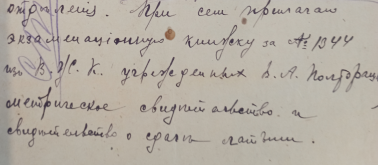 отдѣленія. При семъ прилагаю
экзаменаціонную книжку за № 1344
изъ В.Ж.К. учрежденныхъ В. А. Полторацк
метрическое свидѣтельство и
свидѣтельство о сдачѣ латыни.